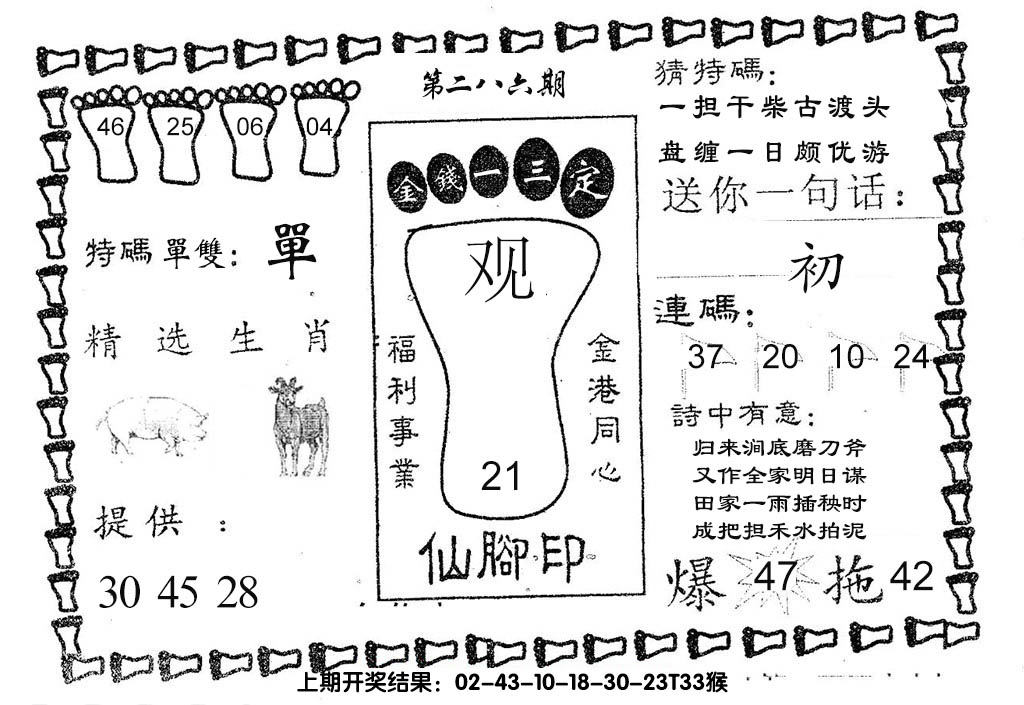 第二八六期
46 25 06 04
特碼單雙：單
精选生肖
提供：
30 45 28
金錢一三定
观
福利事業
金港同心
21
仙腳印
猜特碼：
一担干柴古渡头
盘缠一日颇优游
送你一句话：
初
連碼：
37 20 10 24
詩中有意：
归来涧底磨刀斧
又作全家明日谋
田家一雨插秧时
成把担禾水拍泥
爆 47 拖 42
上期开奖结果：02-43-10-18-30-23T33猴